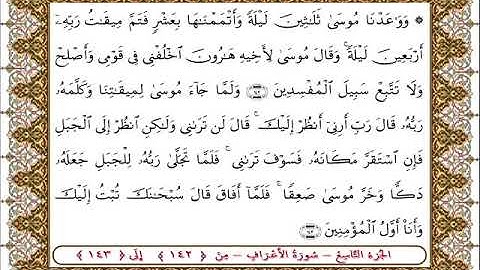 ۞ وَوَٰعَدْنَا مُوسَىٰ ثَلَـٰثِينَ لَيْلَةً وَأَتْمَمْنَـٰهَا بِعَشْرٍ فَتَمَّ مِيقَـٰتُ رَبِّهِۦٓ
أَرْبَعِينَ لَيْلَةً ۚ وَقَالَ مُوسَىٰ لِأَخِيهِ هَـٰرُونَ ٱخْلُفْنِى فِى قَوْمِى وَأَصْلِحْ
وَلَا تَتَّبِعْ سَبِيلَ ٱلْمُفْسِدِينَ ﴿١٤٢﴾ وَلَمَّا جَآءَ مُوسَىٰ لِمِيقَـٰتِنَا وَكَلَّمَهُۥ
رَبُّهُۥ قَالَ رَبِّ أَرِنِىٓ أَنظُرْ إِلَيْكَ ۚ قَالَ لَن تَرَىٰنِى وَلَـٰكِنِ ٱنظُرْ إِلَى ٱلْجَبَلِ
فَإِنِ ٱسْتَقَرَّ مَكَانَهُۥ فَسَوْفَ تَرَىٰنِى ۚ فَلَمَّا تَجَلَّىٰ رَبُّهُۥ لِلْجَبَلِ جَعَلَهُۥ
دَكًّا وَخَرَّ مُوسَىٰ صَعِقًا ۚ فَلَمَّآ أَفَاقَ قَالَ سُبْحَـٰنَكَ تُبْتُ إِلَيْكَ
وَأَنَا۠ أَوَّلُ ٱلْمُؤْمِنِينَ ﴿١٤٣﴾
الجزء التاسع - سورة الأعراف - من ﴿١٤٢﴾ إلى ﴿١٤٣﴾